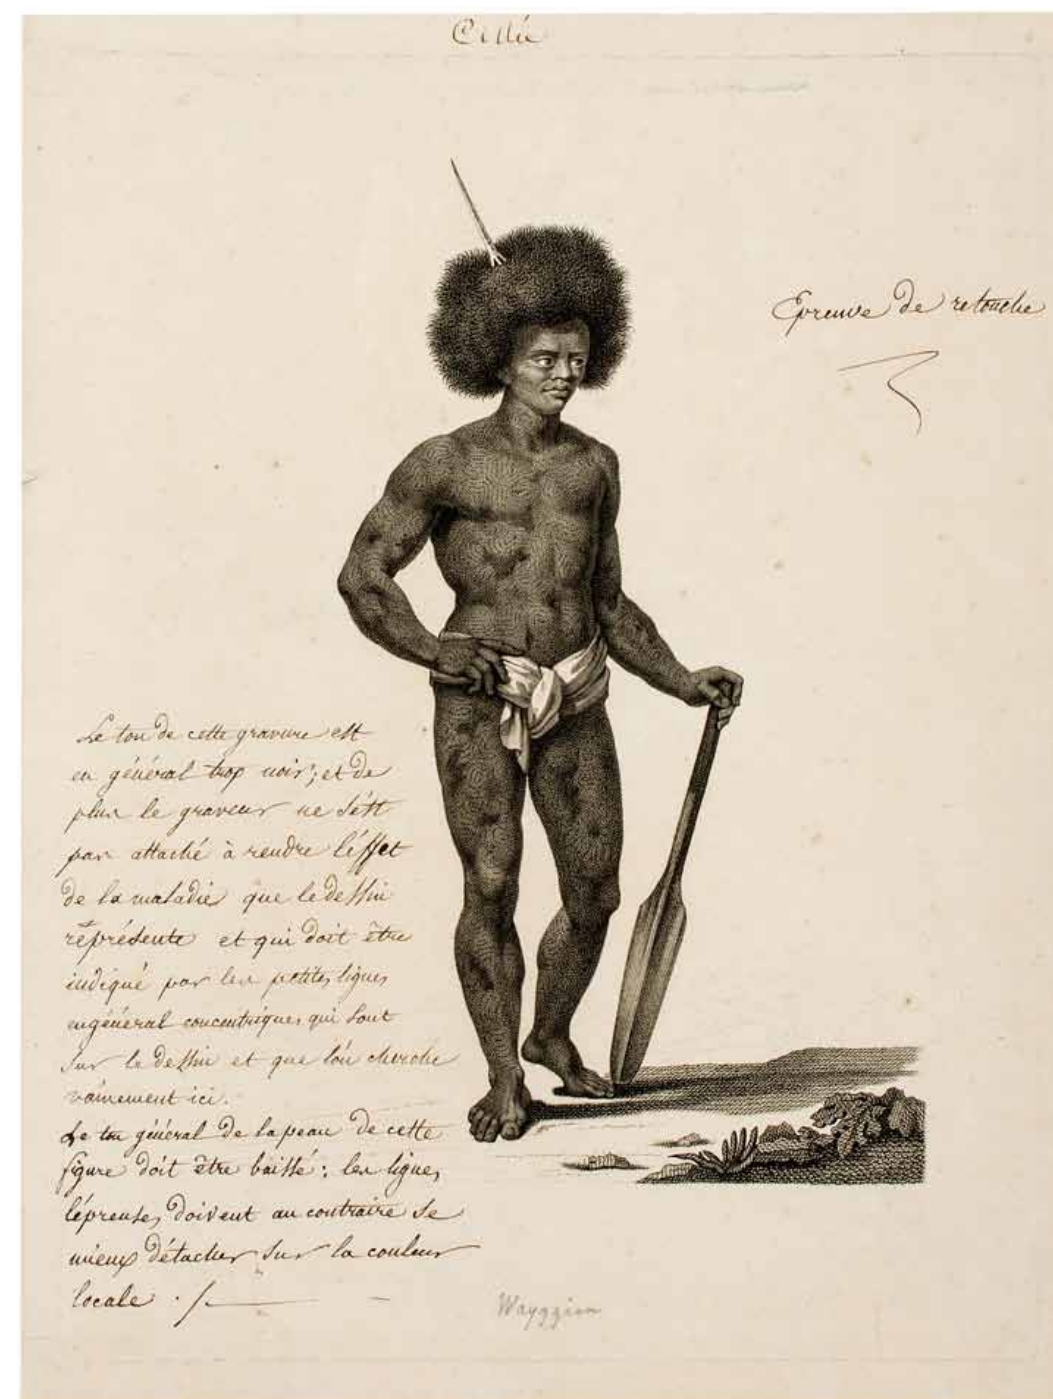 Epreuve de retouche
Le ton de cette gravure est
en général trop noir; et de
plus le graveur ne s'est
pas attaché à rendre l'éffet
de la maladie que le dessin
représente et qui doit être
indiqué par les petites lignes
engénéral concentriques qui sont
sur le dessin et que l'on cherche
vainement ici.
Le ton général de la peau de cette
figure doit être baissé: les lignes
lépreuses, doivent au contraire se
mieux détacher sur la couleur
locale ./.